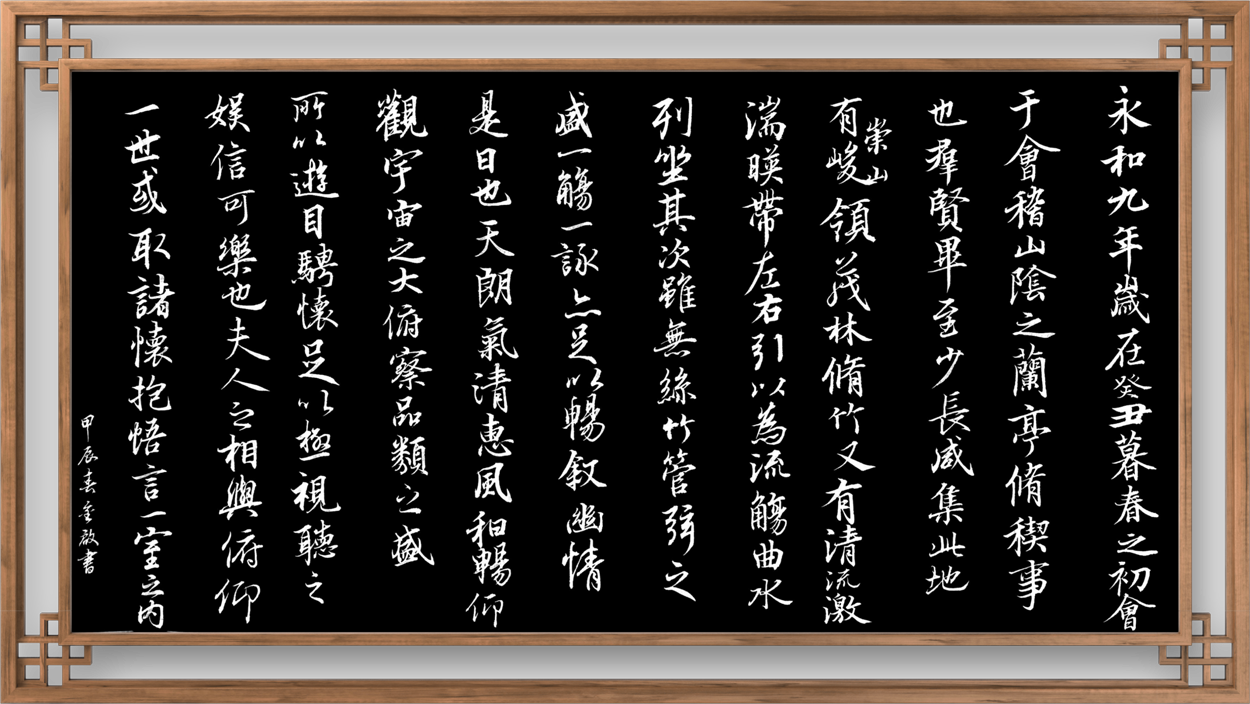 永和九年歲在癸丑暮春之初會
于會稽山陰之蘭亭脩稧事
也羣賢畢至少長咸集此地
有崇山峻領茂林脩竹又有清流激
湍暎帶左右引以為流觴曲水
列坐其次雖無絲竹管弦之
盛一觴一詠亦足以暢叙幽情
是日也天朗氣清惠風和暢仰
觀宇宙之大俯察品類之盛
所以遊目騁懷足以極視聽之
娛信可樂也夫人之相與俯仰
一世或取諸懷抱悟言一室之內
甲辰春金啟書